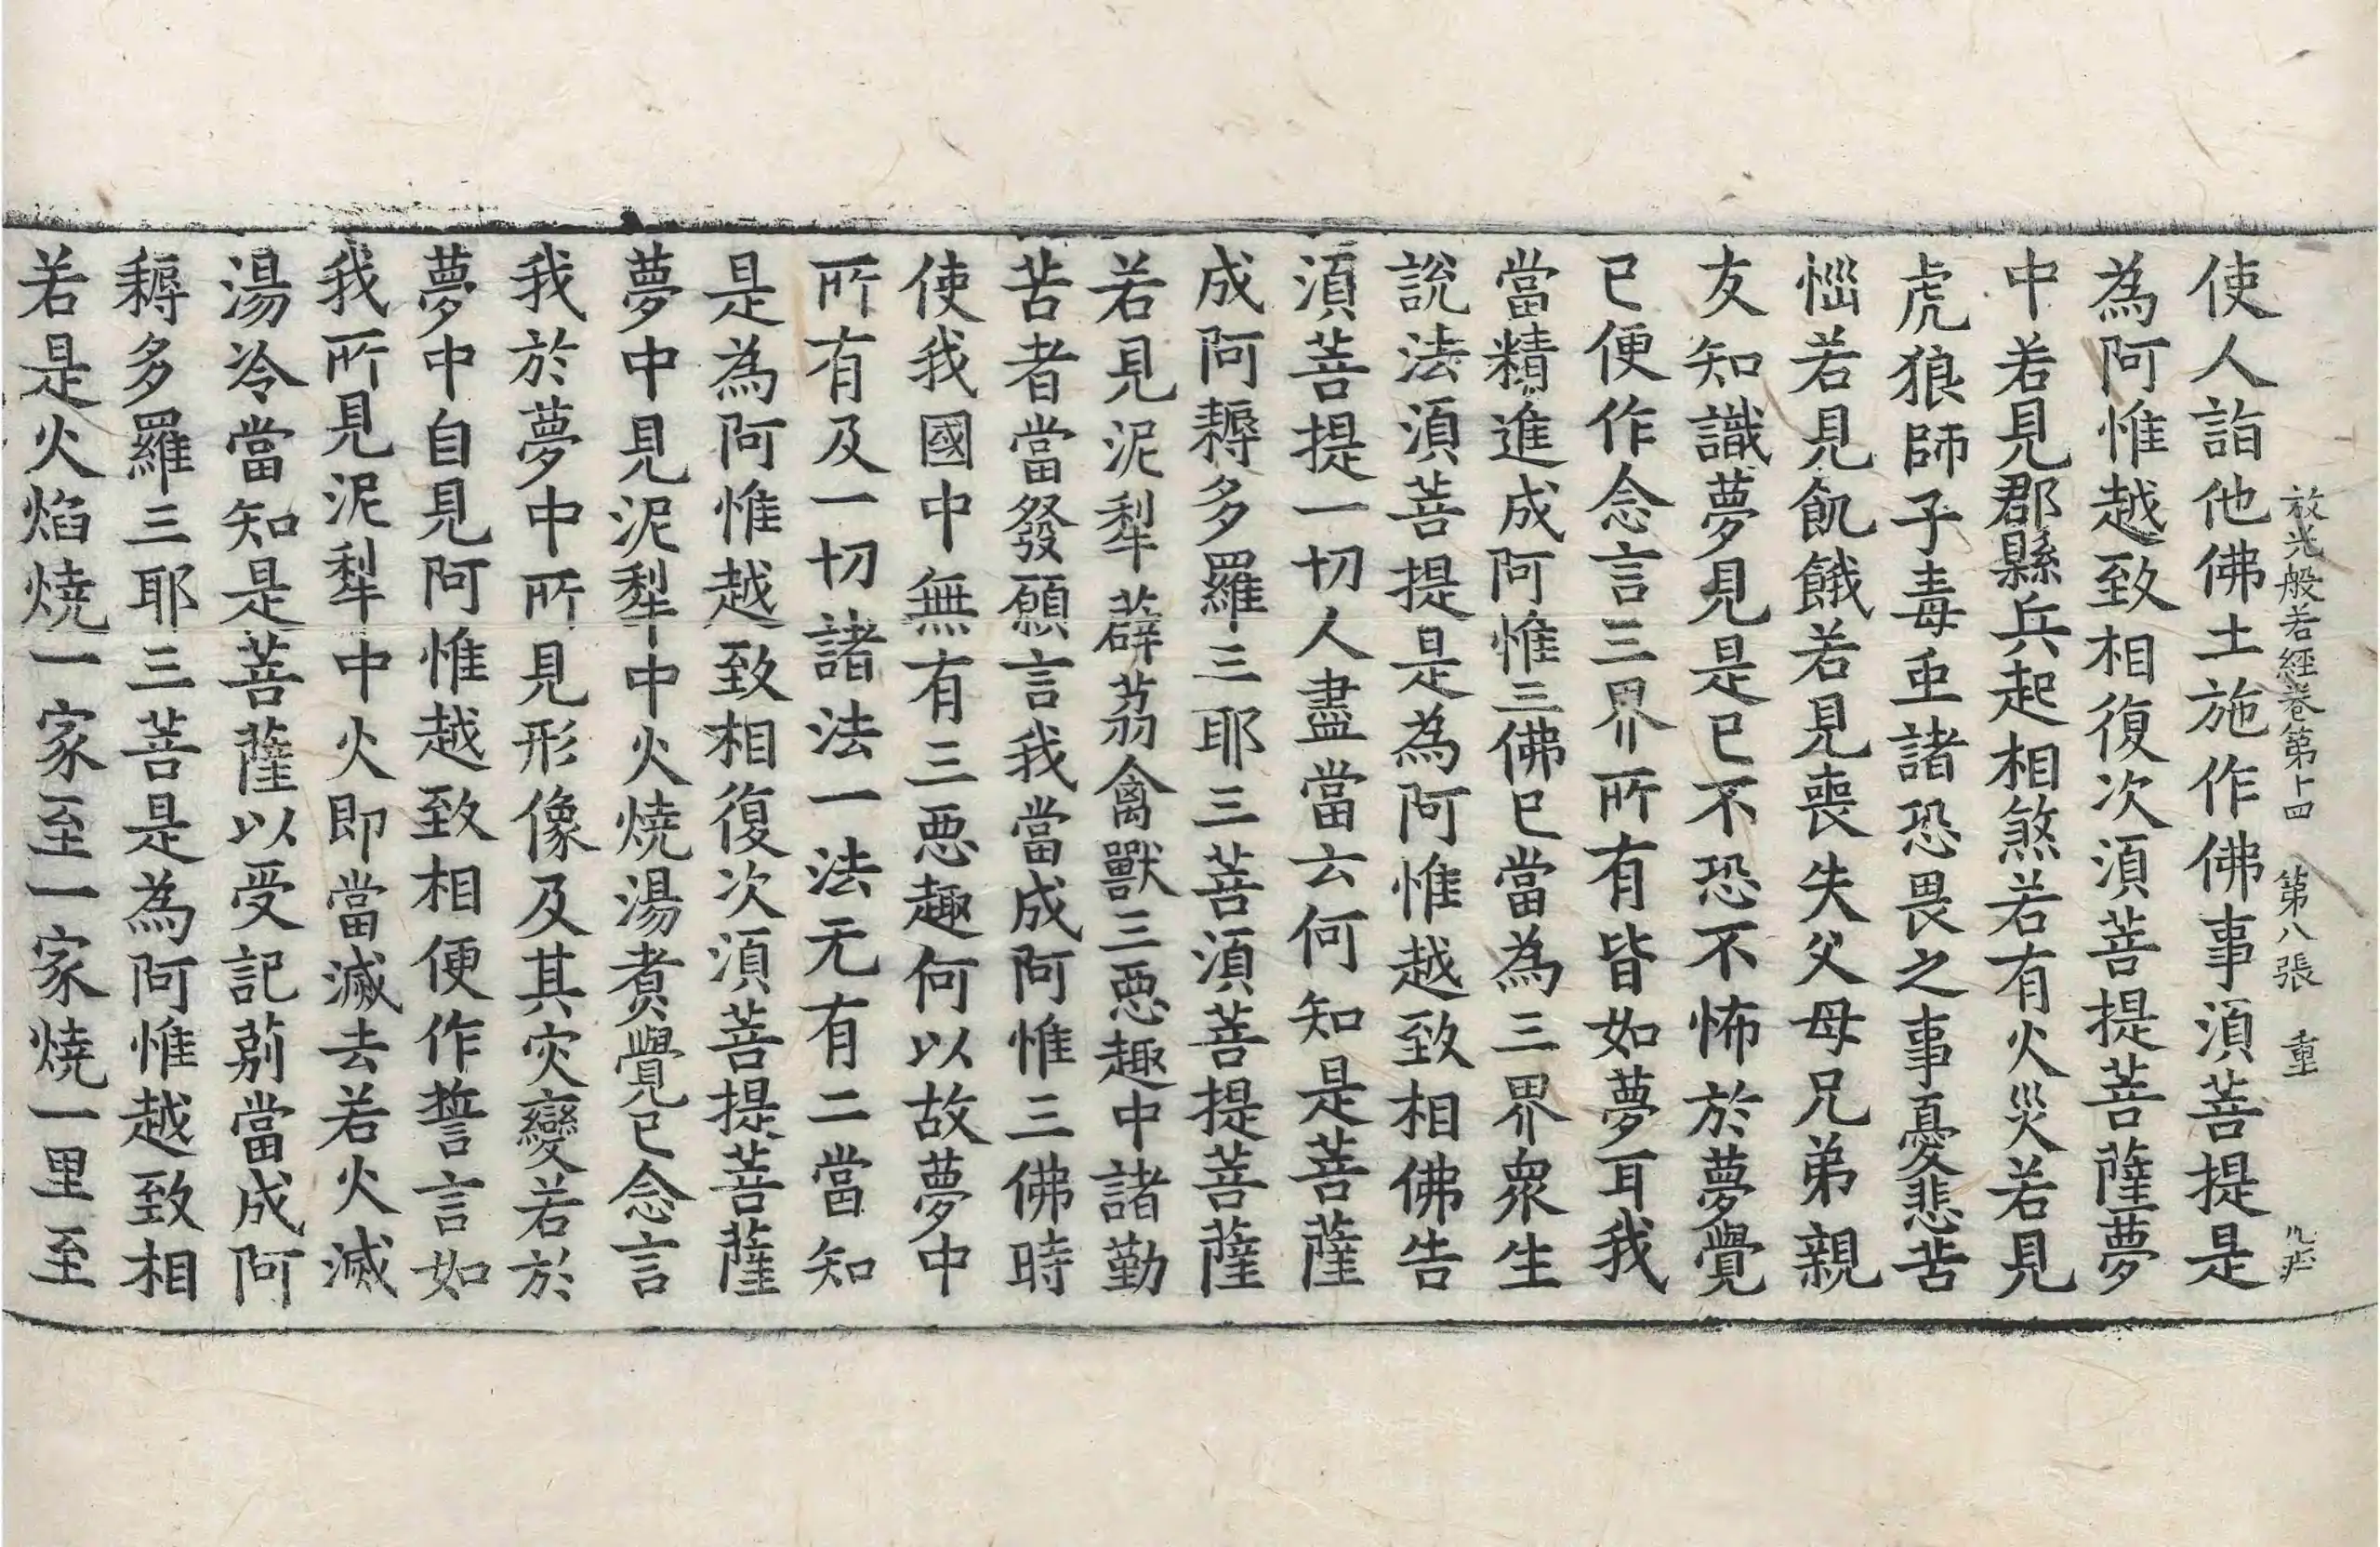 放光般若經卷第十四　第八張　重
使人詣他佛土施作佛事須菩提是
為阿惟越致相復次須菩提菩薩夢
中若見郡縣兵起相煞若有火災若見
虎狼師子毒虫諸恐畏之事憂悲苦
惱若見飢餓若見喪失父母兄弟親
友知識夢見是已不恐不怖於夢覺
已便作念言三界所有皆如夢耳我
當精進成阿惟三佛已當為三界眾生
說法須菩提是為阿惟越致相佛告
須菩提一切人盡當云何知是菩薩
成阿耨多羅三耶三菩須菩提菩薩
若見泥犁薜荔禽獸三惡趣中諸勤
苦者當發願言我當成阿惟三佛時
使我國中無有三惡趣何以故夢中
所有及一切諸法一法无有二當知
是為阿惟越致相復次須菩提菩薩
夢中見泥犁中火燒湯煮覺已念言
我於夢中所見形像及其灾變若於
夢中自見阿惟越致相便作誓言如
我所見泥犁中火即當滅去若火滅
湯冷當知是菩薩以受記莂當成阿
耨多羅三耶三菩是為阿惟越致相
若是火焰燒一家至一家燒一里至